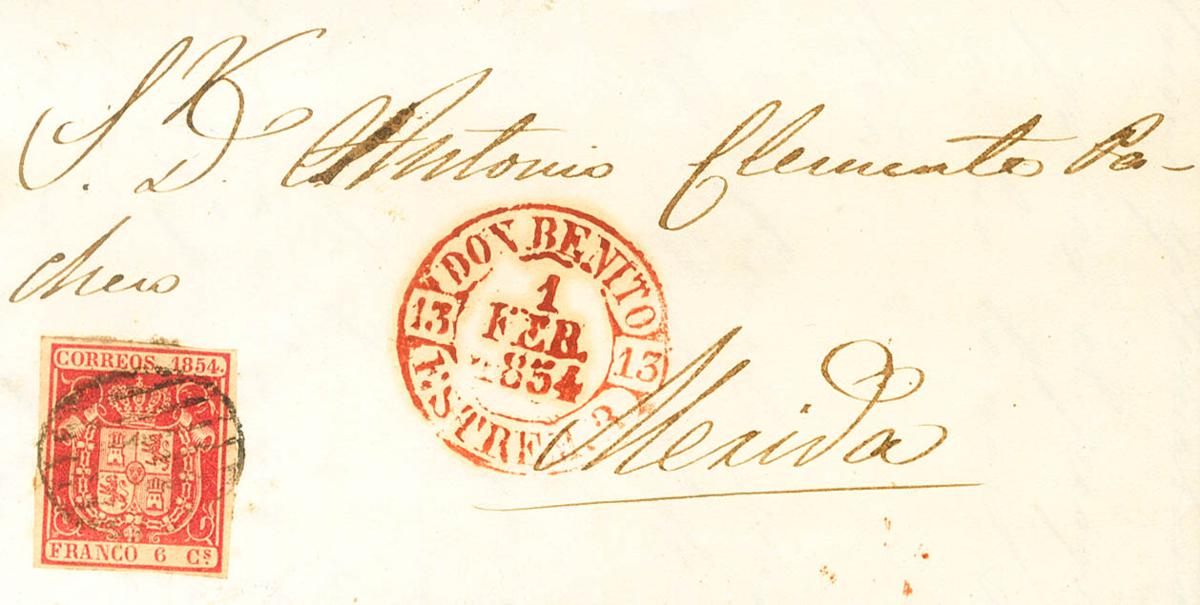 S. D. Antonio Clemente Pa-
checo
DON BENITO
13 1 13
FEB.
1854
ESTREM.a
Merida
CORREOS. 1854.
FRANCO 6 Cs